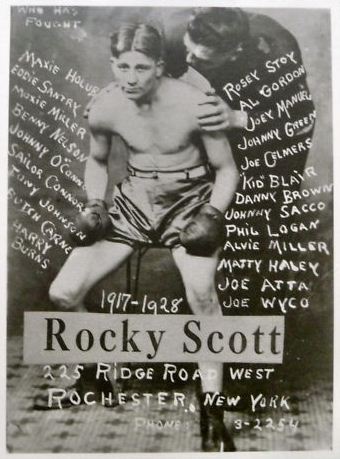 WHO HAS
FOUGHT
MAXIE HOLUB
EDDIE SANTRY
MOXIE MILLER
BENNY NELSON
JOHNNY O'CONN
SAILOR CONNORS
TONY JOHNSON
BUTCH CARNE
HARRY
BURNS
ROSEY STOY
AL GORDON
JOEY MANUEL
JOHNNY GREEN
JOE CELMERS
"KID" BLAIR
DANNY BROWN
JOHNNY SACCO
PHIL LOGAN
ALVIE MILLER
MATTY HALEY
JOE ATTA
JOE WYCO
1917-1928
Rocky Scott
225 RIDGE ROAD WEST
ROCHESTER, NEW YORK
PHONE: 3-2254